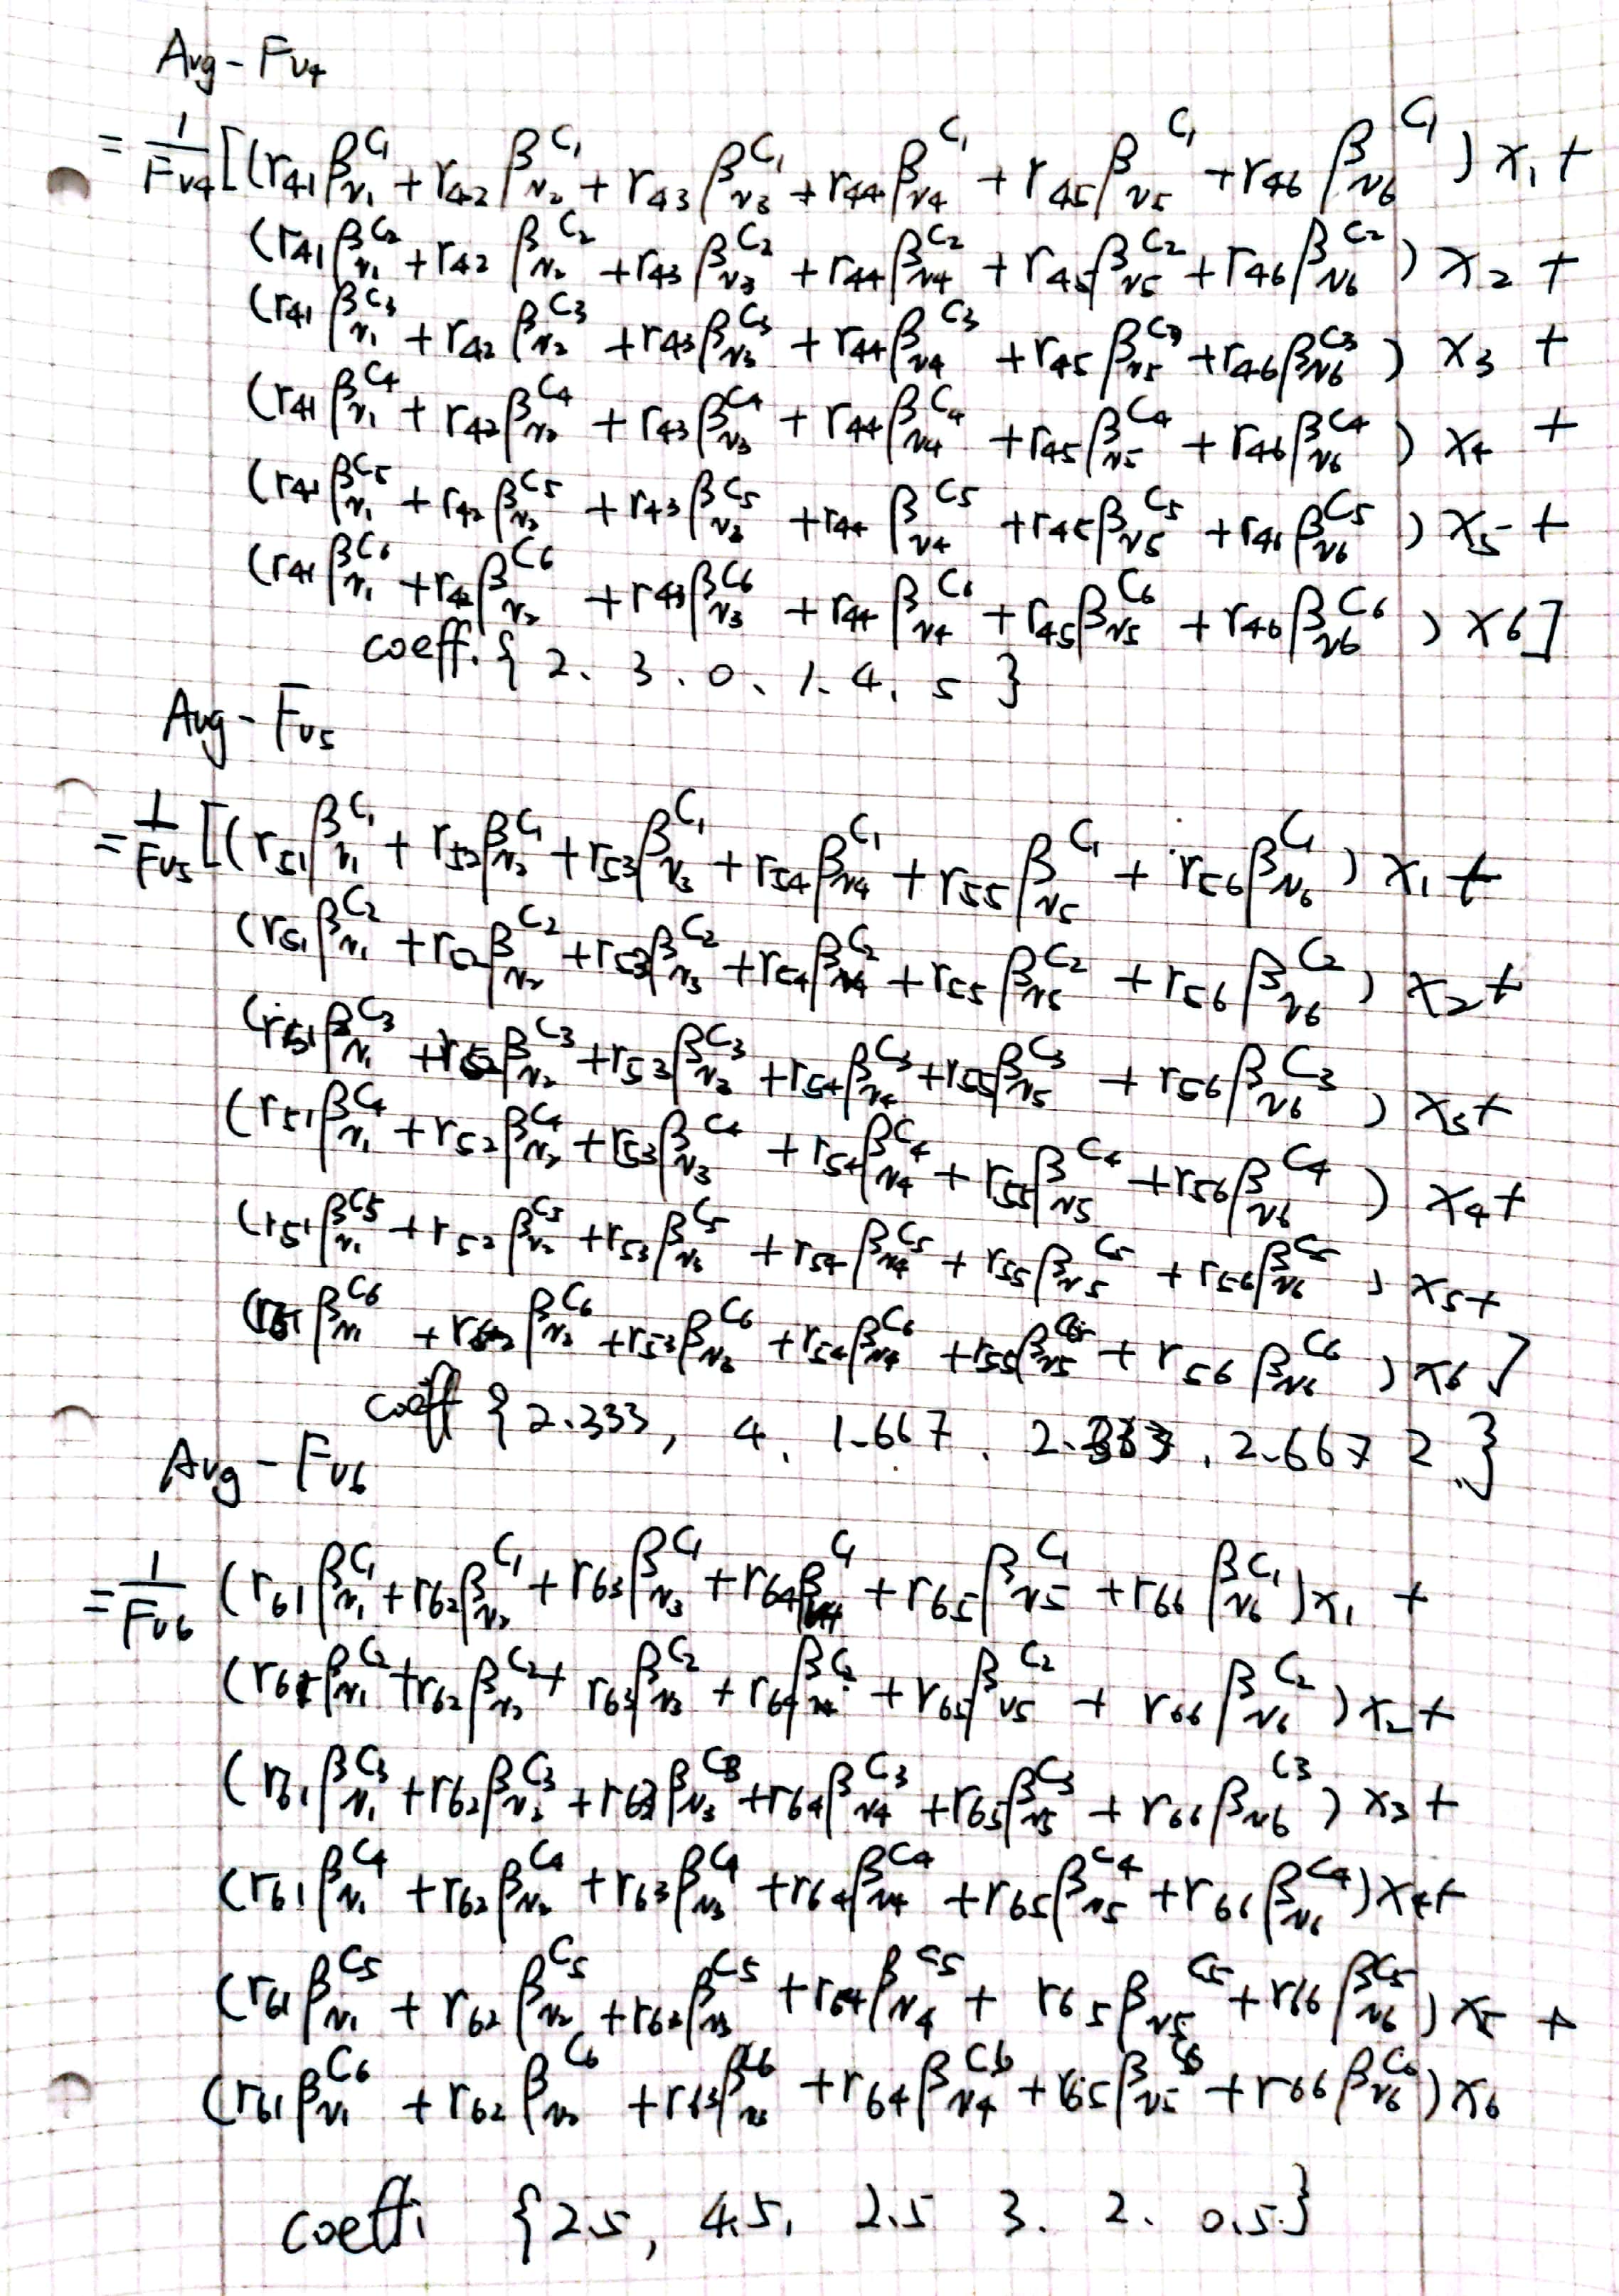 Avg - Fv4
= 1/Fv4 [(r41 β_v1^C1 + r42 β_v2^C1 + r43 β_v3^C1 + r44 β_v4^C1 + r45 β_v5^C1 + r46 β_v6^C1) x1 +
(r41 β_v1^C2 + r42 β_v2^C2 + r43 β_v3^C2 + r44 β_v4^C2 + r45 β_v5^C2 + r46 β_v6^C2) x2 +
(r41 β_v1^C3 + r42 β_v2^C3 + r43 β_v3^C3 + r44 β_v4^C3 + r45 β_v5^C3 + r46 β_v6^C3) x3 +
(r41 β_v1^C4 + r42 β_v2^C4 + r43 β_v3^C4 + r44 β_v4^C4 + r45 β_v5^C4 + r46 β_v6^C4) x4 +
(r41 β_v1^C5 + r42 β_v2^C5 + r43 β_v3^C5 + r44 β_v4^C5 + r45 β_v5^C5 + r46 β_v6^C5) x5 +
(r41 β_v1^C6 + r42 β_v2^C6 + r43 β_v3^C6 + r44 β_v4^C6 + r45 β_v5^C6 + r46 β_v6^C6) x6]
coeff. { 2. 3. 0. 1. 4. 5 }
Avg - Fv5
= 1/Fv5 [(r51 β_v1^C1 + r52 β_v2^C1 + r53 β_v3^C1 + r54 β_v4^C1 + r55 β_v5^C1 + r56 β_v6^C1) x1 +
(r51 β_v1^C2 + r52 β_v2^C2 + r53 β_v3^C2 + r54 β_v4^C2 + r55 β_v5^C2 + r56 β_v6^C2) x2 +
(r51 β_v1^C3 + r52 β_v2^C3 + r53 β_v3^C3 + r54 β_v4^C3 + r55 β_v5^C3 + r56 β_v6^C3) x3 +
(r51 β_v1^C4 + r52 β_v2^C4 + r53 β_v3^C4 + r54 β_v4^C4 + r55 β_v5^C4 + r56 β_v6^C4) x4 +
(r51 β_v1^C5 + r52 β_v2^C5 + r53 β_v3^C5 + r54 β_v4^C5 + r55 β_v5^C5 + r56 β_v6^C5) x5 +
(r51 β_v1^C6 + r52 β_v2^C6 + r53 β_v3^C6 + r54 β_v4^C6 + r55 β_v5^C6 + r56 β_v6^C6) x6]
coeff { 2.333, 4. 1.667. 2.333. 2.667 2. }
Avg - Fv6
= 1/Fv6 (r61 β_v1^C1 + r62 β_v2^C1 + r63 β_v3^C1 + r64 β_v4^C1 + r65 β_v5^C1 + r66 β_v6^C1) x1 +
(r61 β_v1^C2 + r62 β_v2^C2 + r63 β_v3^C2 + r64 β_v4^C2 + r65 β_v5^C2 + r66 β_v6^C2) x2 +
(r61 β_v1^C3 + r62 β_v2^C3 + r63 β_v3^C3 + r64 β_v4^C3 + r65 β_v5^C3 + r66 β_v6^C3) x3 +
(r61 β_v1^C4 + r62 β_v2^C4 + r63 β_v3^C4 + r64 β_v4^C4 + r65 β_v5^C4 + r66 β_v6^C4) x4 +
(r61 β_v1^C5 + r62 β_v2^C5 + r63 β_v3^C5 + r64 β_v4^C5 + r65 β_v5^C5 + r66 β_v6^C5) x5 +
(r61 β_v1^C6 + r62 β_v2^C6 + r63 β_v3^C6 + r64 β_v4^C6 + r65 β_v5^C6 + r66 β_v6^C6) x6
coeffi { 2.5, 4.5, 2.5 3. 2. 0.5. }